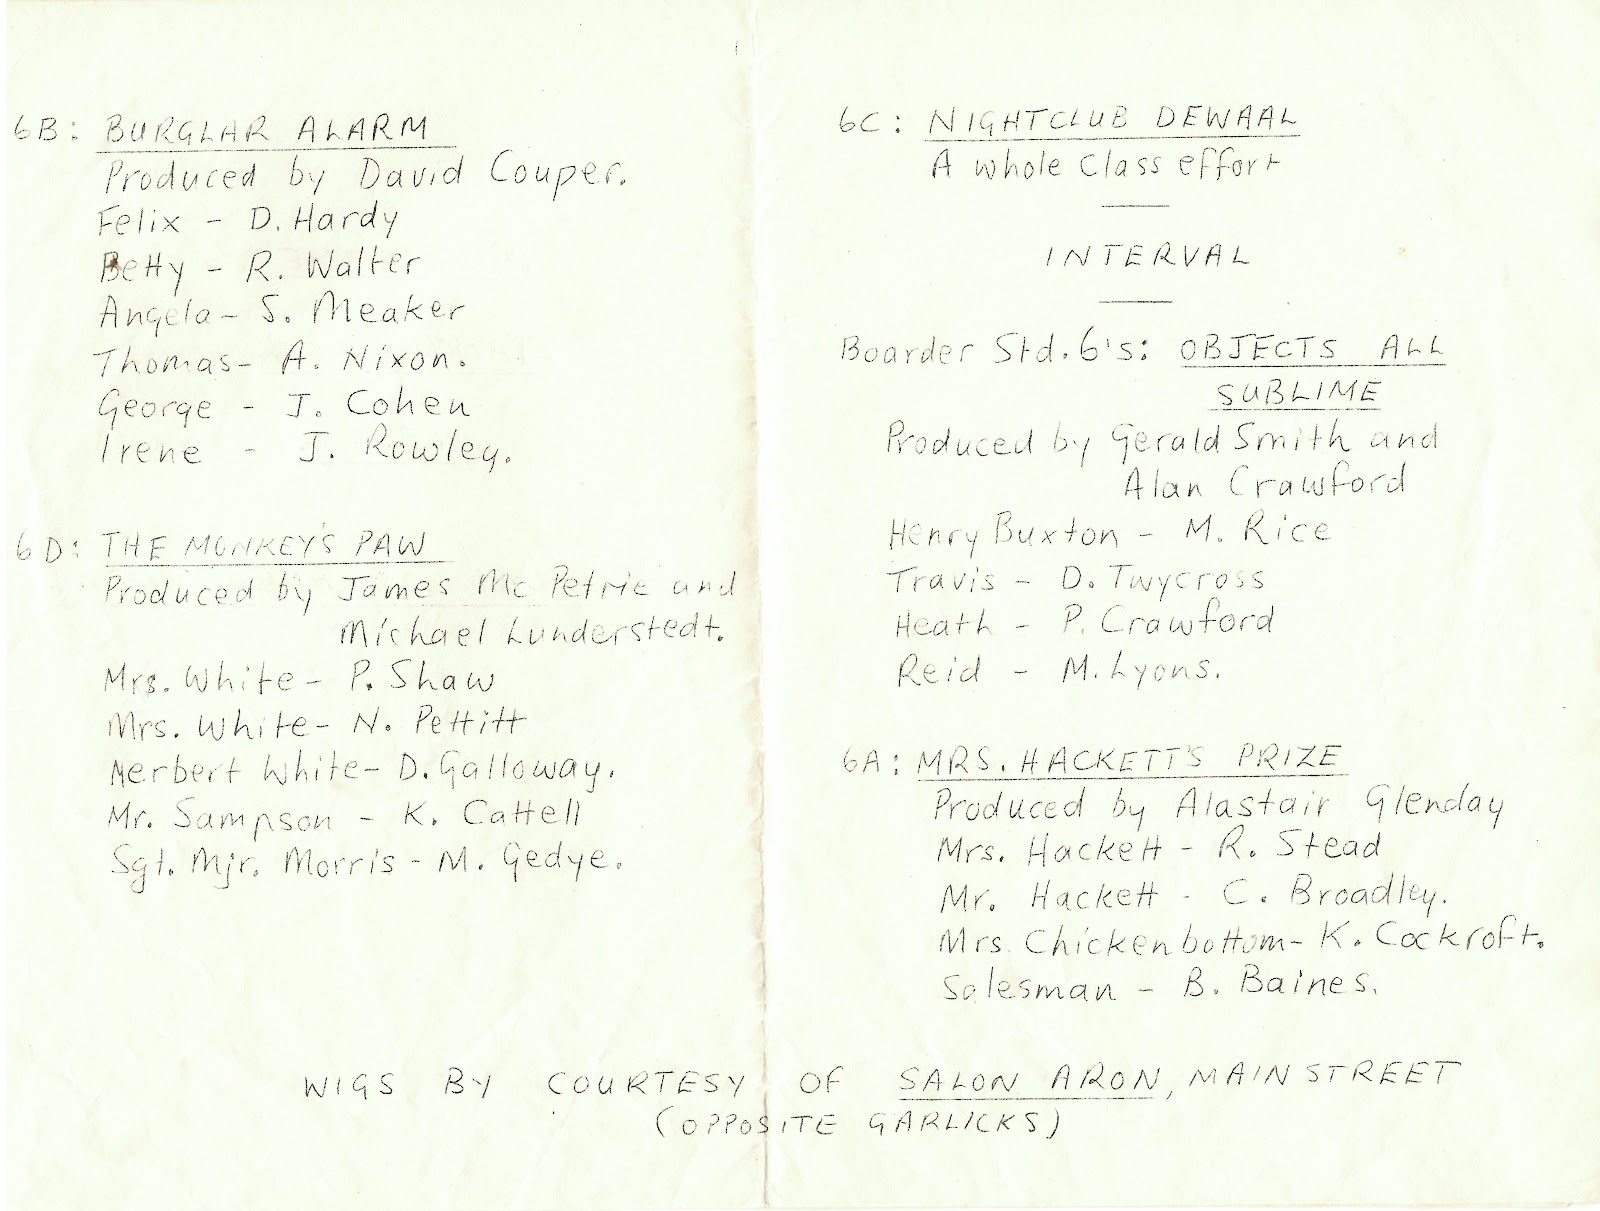 6B: BURGLAR ALARM
Produced by David Couper.
Felix - D. Hardy
Betty - R. Walter
Angela - S. Meaker
Thomas - A. Nixon.
George - J. Cohen
Irene - J. Rowley.
6D: THE MONKEY'S PAW
Produced by James Mc Petrie and
Michael Lunderstedt.
Mrs. White - P. Shaw
Mrs. White - N. Pettitt
Herbert White - D. Galloway.
Mr. Sampson - K. Cattell
Sgt. Mjr. Morris - M. Gedye.
6C: NIGHTCLUB DEWAAL
A whole class effort
INTERVAL
Boarder Std. 6's: OBJECTS ALL
SUBLIME
Produced by Gerald Smith and
Alan Crawford
Henry Buxton - M. Rice
Travis - D. Twycross
Heath - P. Crawford
Reid - M. Lyons.
6A: MRS. HACKETT'S PRIZE
Produced by Alastair Glenday
Mrs. Hackett - R. Stead
Mr. Hackett - C. Broadley.
Mrs Chickenbottom - K. Cockroft.
Salesman - B. Baines.
WIGS BY COURTESY OF SALON ARON, MAIN STREET
(OPPOSITE GARLICKS)